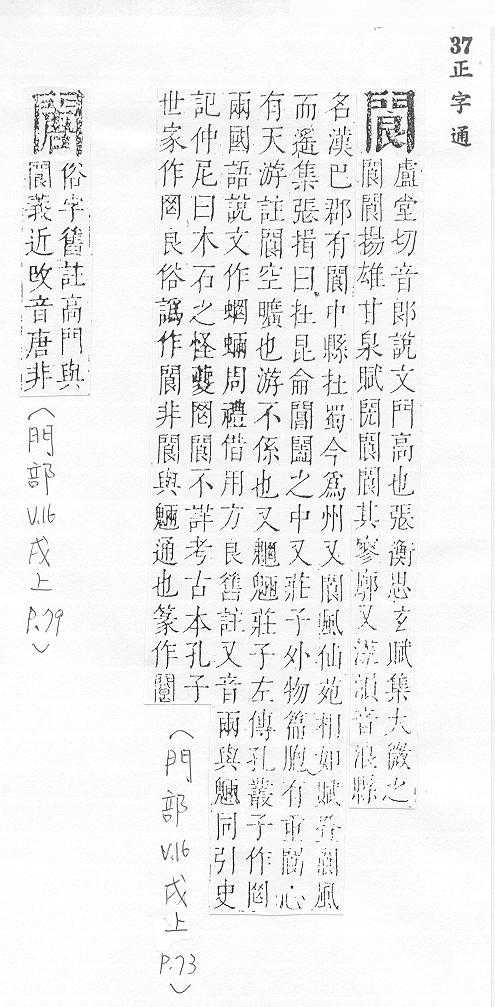 37正字通
閬
盧堂切音郞說文門高也張衡思玄賦集大微之
閬閬揚雄甘泉賦閌閬閬其寥廓又漾韻音浪縣
名漢巴郡有閬中縣在蜀今爲州又閬風仙苑相如賦登閬風
而遙集張揖曰在昆侖閶闔之中又莊子外物篇胞有重閬心
有天游註閬空曠也游不係也又魍魎莊子左傳孔叢子作罔
兩國語說文作蝄蜽周禮借用方良舊註又音兩與魎同引史
記仲尼曰木石之怪夔罔閬不詳考古本孔子
世家作罔良俗譌作閬非閬與魎通也篆作
(門部 V.16 戌上 P.73)
俗字舊註高門與
閬義近改音唐非
(門部 V.16 戌上 P.79)